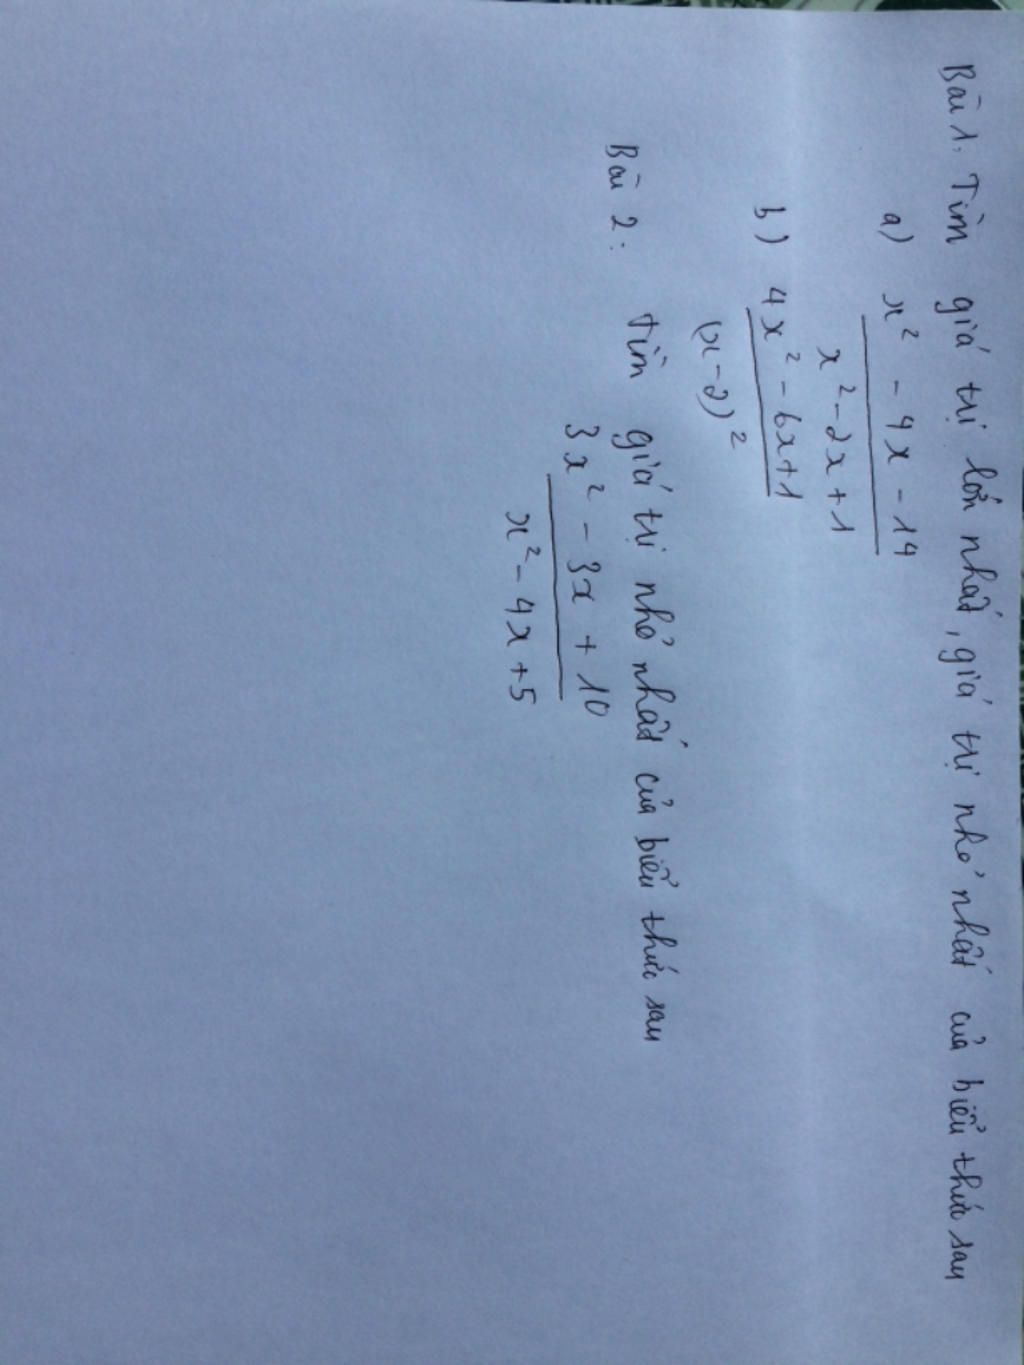 Bài 1. Tìm giá trị lớn nhất, giá trị nhỏ nhất của biểu thức sau
a) x² - 4x - 14
x² - 2x + 1
b) 4x² - 6x + 1
(x - 2)²
Bài 2: Tìm giá trị nhỏ nhất của biểu thức sau
3x² - 3x + 10
x² - 4x + 5